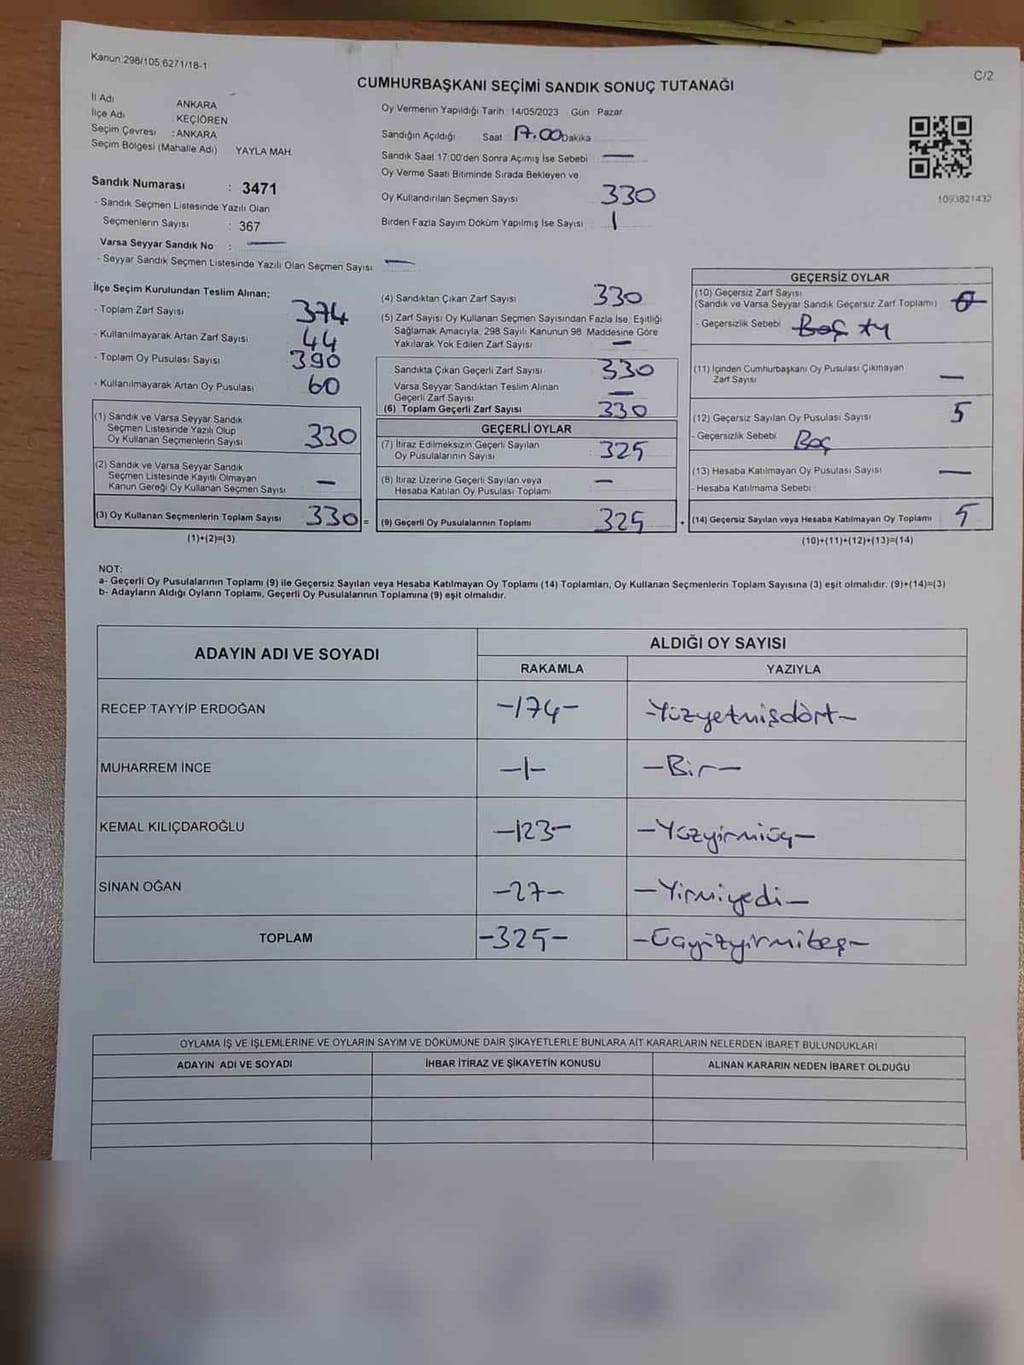 Kanun:298/105,6271/18-1
C/2
CUMHURBAŞKANI SEÇİMİ SANDIK SONUÇ TUTANAĞI
İl Adı ANKARA
İlçe Adı KEÇİÖREN
Seçim Çevresi : ANKARA
Seçim Bölgesi (Mahalle Adı) YAYLA MAH.
Sandık Numarası : 3471
- Sandık Seçmen Listesinde Yazılı Olan
Seçmenlerin Sayısı : 367
Varsa Seyyar Sandık No : —
- Seyyar Sandık Seçmen Listesinde Yazılı Olan Seçmen Sayısı —
Oy Vermenin Yapıldığı Tarih 14/05/2023 Gün Pazar
Sandığın Açıldığı Saat 17.00 Dakika
Sandık Saat 17:00'den Sonra Açımış İse Sebebi —
Oy Verme Saati Bitiminde Sırada Bekleyen ve
Oy Kullandırılan Seçmen Sayısı 330
Birden Fazla Sayım Döküm Yapılmış İse Sayısı 1
1093821432
İlçe Seçim Kurulundan Teslim Alınan;
- Toplam Zarf Sayısı 374
- Kullanılmayarak Artan Zarf Sayısı 44
- Toplam Oy Pusulası Sayısı 390
- Kullanılmayarak Artan Oy Pusulası 60
(1) Sandık ve Varsa Seyyar Sandık
Seçmen Listesinde Yazılı Olup
Oy Kullanan Seçmenlerin Sayısı 330
(2) Sandık ve Varsa Seyyar Sandık
Seçmen Listesinde Kayıtlı Olmayan
Kanun Gereği Oy Kullanan Seçmen Sayısı —
(3) Oy Kullanan Seçmenlerin Toplam Sayısı 330 =
(1)+(2)=(3)
(4) Sandıktan Çıkan Zarf Sayısı 330
(5) Zarf Sayısı Oy Kullanan Seçmen Sayısından Fazla İse; Eşitliği
Sağlamak Amacıyla, 298 Sayılı Kanunun 98. Maddesine Göre
Yakılarak Yok Edilen Zarf Sayısı —
Sandıkta Çıkan Geçerli Zarf Sayısı 330
Varsa Seyyar Sandıktan Teslim Alınan
Geçerli Zarf Sayısı —
(6) Toplam Geçerli Zarf Sayısı 330
GEÇERLİ OYLAR
(7) İtiraz Edilmeksizin Geçerli Sayılan
Oy Pusulalarının Sayısı 325
(8) İtiraz Üzerine Geçerli Sayılan veya
Hesaba Katılan Oy Pusulası Toplamı —
(9) Geçerli Oy Pusulalarının Toplamı 325 +
GEÇERSİZ OYLAR
(10) Geçersiz Zarf Sayısı
(Sandık ve Varsa Seyyar Sandık Geçersiz Zarf Toplamı)
- Geçersizlik Sebebi Boş
(11) İçinden Cumhurbaşkanı Oy Pusulası Çıkmayan
Zarf Sayısı —
(12) Geçersiz Sayılan Oy Pusulası Sayısı 5
- Geçersizlik Sebebi Boş
(13) Hesaba Katılmayan Oy Pusulası Sayısı —
- Hesaba Katılmama Sebebi
(14) Geçersiz Sayılan veya Hesaba Katılmayan Oy Toplamı 5
(10)+(11)+(12)+(13)=(14)
NOT:
a- Geçerli Oy Pusulalarının Toplamı (9) ile Geçersiz Sayılan veya Hesaba Katılmayan Oy Toplamı (14) Toplamları, Oy Kullanan Seçmenlerin Toplam Sayısına (3) eşit olmalıdır. (9)+(14)=(3)
b- Adayların Aldığı Oyların Toplamı, Geçerli Oy Pusulalarının Toplamına (9) eşit olmalıdır.
ADAYIN ADI VE SOYADI
ALDIĞI OY SAYISI
RAKAMLA YAZIYLA
RECEP TAYYİP ERDOĞAN -174- -Yüzyetmişdört-
MUHARREM İNCE -1- -Bir-
KEMAL KILIÇDAROĞLU -123- -Yüzyirmiüç-
SİNAN OĞAN -27- -Yirmiyedi-
TOPLAM -325- -Üçyüzyirmibeş-
OYLAMA İŞ VE İŞLEMLERİNE VE OYLARIN SAYIM VE DÖKÜMÜNE DAİR ŞİKAYETLERLE BUNLARA AİT KARARLARIN NELERDEN İBARET BULUNDUKLARI
ADAYIN ADI VE SOYADI İHBAR İTİRAZ VE ŞİKAYETİN KONUSU ALINAN KARARIN NEDEN İBARET OLDUĞU